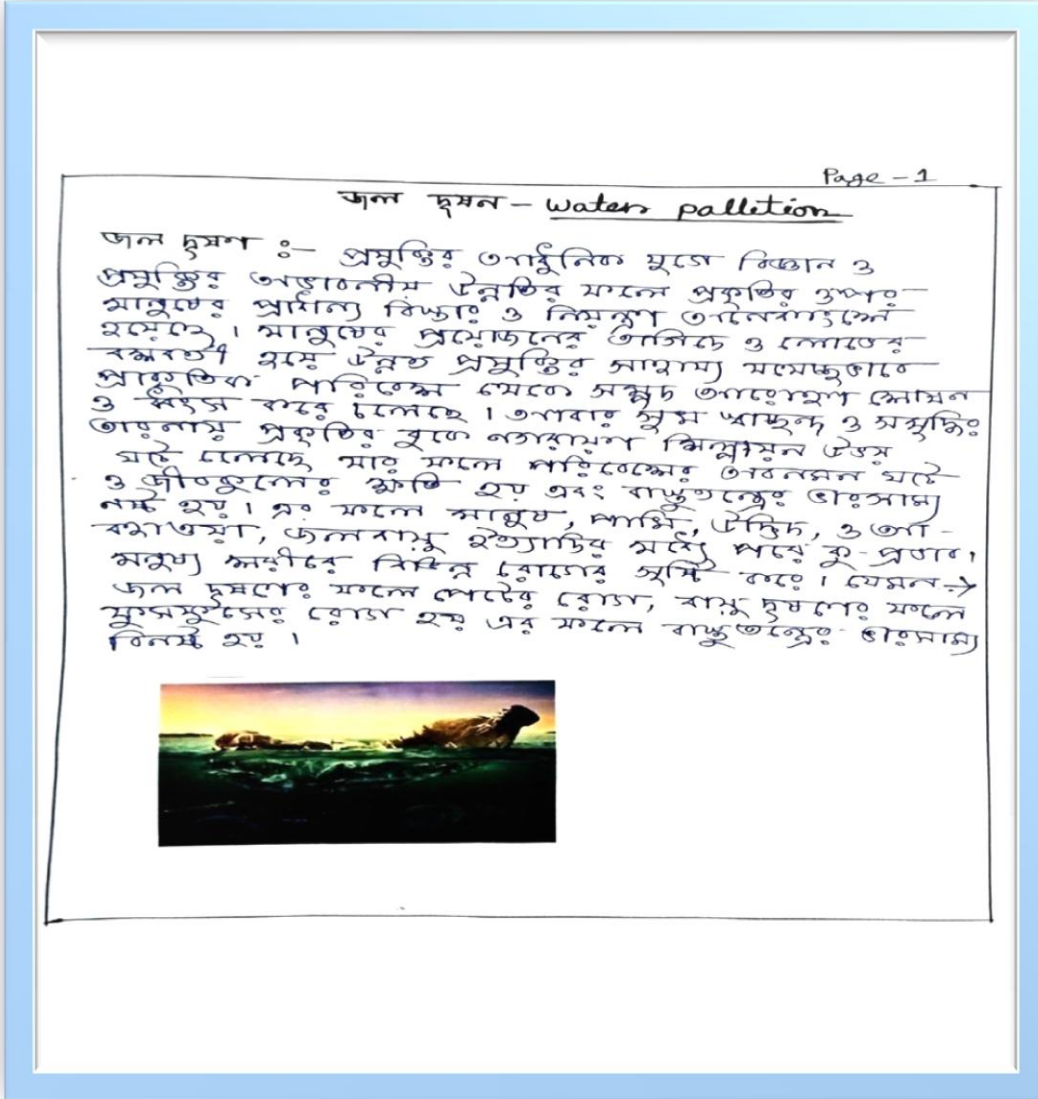 Page - 1
জল দূষন - Water palletion
জল দূষণ ঃ- প্রযুক্তির আধুনিক যুগে বিজ্ঞান ও
প্রযুক্তির অভাবনীয় উন্নতির ফলে প্রকৃতির ওপর
মানুষের প্রাধান্য বিস্তার ও নিয়ন্ত্রণ অনেকাংশে
হয়েছে। মানুষের প্রয়োজনের তাগিদে ও লোভের
বশবর্তী হয়ে উন্নত প্রযুক্তির সাহায্য যথেচ্ছভাবে
প্রাকৃতিক পরিবেশ থেকে সম্পদ আরোহণ শোষন
ও ধংস করে চলেছে। আবার সুখ স্বাচ্ছন্দ ও সমৃদ্ধির
তারনায় প্রকৃতির বুকে নগরায়ণ শিল্পায়ন উভয়
ঘটে চলেছে যার ফলে পরিবেশের অবনমন ঘটে
ও জীবকুলের ক্ষতি হয় এবং বাস্তুতন্ত্রের ভারসাম্য
নষ্ট হয়। এর ফলে মানুষ, পাখি, উদ্ভিদ, ও আ-
বহাওয়া, জলবায়ু ইত্যাদির মধ্যে পরে কু-প্রভাব,
মনুষ্য শরীরে বিভিন্ন রোগের সৃষ্টি করে। যেমন→
জল দূষণের ফলে পেটের রোগ, বায়ু দূষণের ফলে
ফুসফুসের রোগ হয় এর ফলে বাস্তুতন্ত্রের ভারসাম্য
বিনষ্ট হয়।